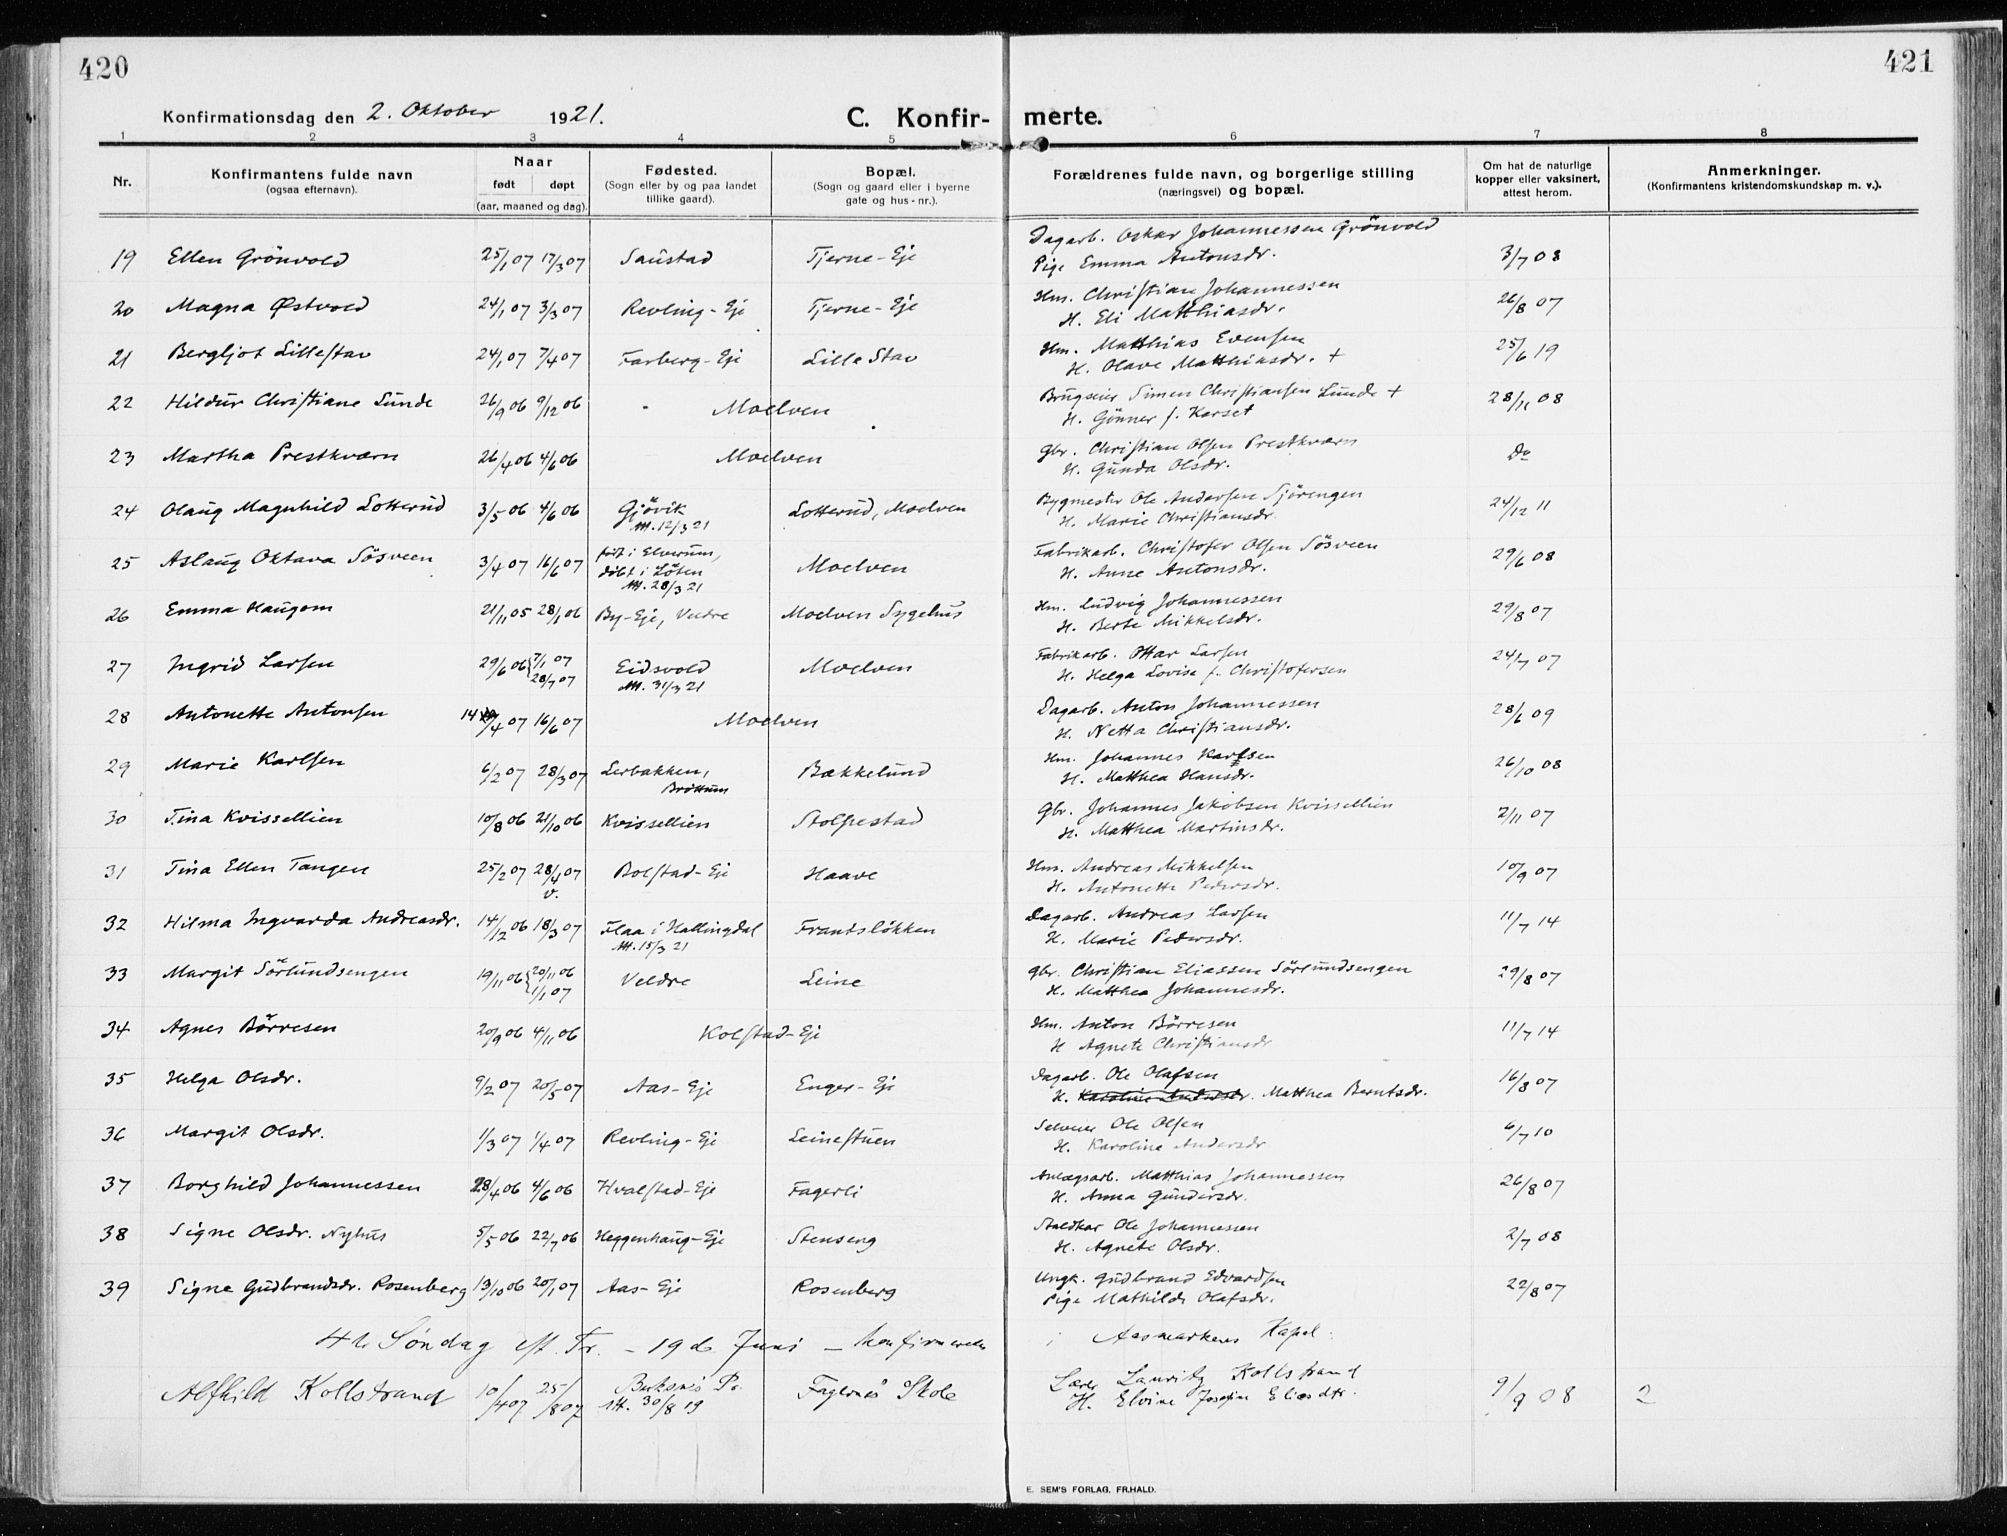 420
421
Konfirmationsdag den 2. Oktober 1921.
C. Konfir-merte.
1 2 3 4 5 6 7 8
Nr.
Konfirmantens fulde navn
(ogsaa efternavn).
Naar
født døpt
(aar, maaned og dag).
Fødested.
(Sogn eller by og paa landet
tillike gaard).
Bopæl.
(Sogn og gaard eller i byerne
gate og hus-nr.).
Forældrenes fulde navn, og borgerlige stilling
(næringsvei) og bopæl.
Om hat de naturlige
kopper eller vaksinert,
attest herom.
Anmerkninger.
(Konfirmantens kristendomskundskap m. v.).
Dagarb. Oskar Johannessen Grönvold
19 Ellen Grönvold 25/1 07 17/3 07 Saustad Tjerne-Eje Pige Emma Antonsdr. 3/7 08
Hm. Christian Johannessen
20 Magna Østvold 24/1 07 3/3 07 Revling-Eje Tjerne-Eje H. Eli Matthiasdr. 26/8 07
Hm. Matthias Evensen
21 Bergljot Lillestav 24/1 07 7/4 07 Farberg-Eje Lille Stav H. Olave Matthiasdr. + 25/6 19
Brugseier Simen Christiansen Lunde +
22 Hildur Christiane Lunde 26/9 06 9/12 06 Moelven H. Gönner f. Karset 28/11 08
Gbr. Christian Olsen Prestkværn
23 Martha Prestkværn 26/4 06 4/6 06 Moelven H. Gunda Olsdr. Do
Bygmester Ole Andersen Sjörengen
24 Olaug Magnhild Lotterud 3/5 06 4/6 06 Gjövik Lotterud, Moelven H. Marie Christiansdr. 24/12 11
Att. 12/3 21
Fabrikarb. Christofer Olsen Sösveen
25 Aslaug Oktava Sösveen 3/4 07 16/6 07 født i Elverum, Moelven H. Anne Antonsdr. 29/6 08
döbt i Löten
Att. 28/3 21
Hm. Ludvig Johannessen
26 Emma Haugom 21/11 05 28/1 06 By-Eje, Veldre Moelven Sygehus H. Berte Mikkelsdr. 29/8 07
Fabrikarb. Ottar Larsen
27 Ingrid Larsen 29/6 06 { 7/1 07 28/7 07 Eidsvold Moelven H. Helga Lovise f. Christofersen 24/7 07
Att. 31/3 21
Dagarb. Anton Johannessen
28 Antonette Antonsen 14/4 07 16/6 07 Moelven H. Netta Christiansdr. 28/6 09
Hm. Johannes Karlsen
29 Marie Karlsen 6/2 07 28/3 07 Lerbakken, Bækkelund H. Matthea Hansdr. 26/10 08
Brøttum
Gbr. Johannes Jakobsen Kvissellien
30 Tina Kvissellien 10/8 06 21/10 06 Kvissellien Stolpestad H. Matthea Martinsdr. 2/11 07
Hm. Andreas Mikkelsen
31 Tina Ellen Tangen 25/2 07 28/4 07 Bolstad-Eje Haave H. Antonette Pedersdr. 10/9 07
v.
Dagarb. Andreas Larsen
32 Hilma Ingvarda Andreasdr. 14/12 06 18/3 07 Flaa i Hallingdal Frantsløkken H. Marie Pedersdr. 11/7 14
Att. 15/3 21
Gbr. Christian Eliassen Sörlundsengen
33 Margit Sörlundsengen 19/11 06 { 20/11 06 1/1 07 Veldre Leine H. Matthea Johannesdr. 29/8 07
Hm. Anton Börresen
34 Agnes Börresen 20/9 06 4/11 06 Kolstad-Eje H Agnete Christiansdr 11/7 14
Dagarb. Ole Olafsen
35 Helga Olsdr. 9/2 07 20/5 07 Aas-Eje Enger-Eje H. Karoline Andersdr. Matthea Berntsdr. 16/8 07
Selveier Ole Olsen
36 Margit Olsdr. 1/3 07 1/4 07 Revling-Eje Leinestuen H. Karoline Andersdr 6/7 10
Anlægsarb. Matthias Johannessen
37 Borghild Johannessen 28/4 06 4/6 06 Hvalstad-Eje Fagerli H. Anna Gundersdr. 26/8 07
Staldkar Ole Johannessen
38 Signe Olsdr. Nyhus 5/5 06 22/7 06 Heggenhaug-Eje Stenseng H. Agnete Olsdr. 2/7 08
Ungk. Gudbrand Edvardsen
39 Signe Gudbrandsdr. Rosenberg 13/10 06 20/1 07 Aas-Eje Rosenberg Pige Mathilde Olafsdr. 22/8 07
4de Söndag eft. Tr. - 19de Juni - konfirmeredes i Aasmarkens Kapel:
Lærer Lauritz Kollstrand
Alfhild Kollstrand 10/4 07 25/8 07 Buksnes Pr. Fagernes Skole H. Elvine Josefine Eliasdtr. 9/9 08 2
Att. 30/8 19
E. SEM'S FORLAG, FR.HALD.